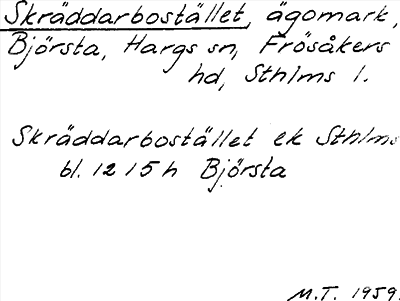 Skräddarbostället, ägomark,
Björsta, Hargs sn, Frösåkers
hd, Sthlms l.
Skräddarbostället ek Sthlms
bl. 12 15 h Björsta
M.T. 1959.